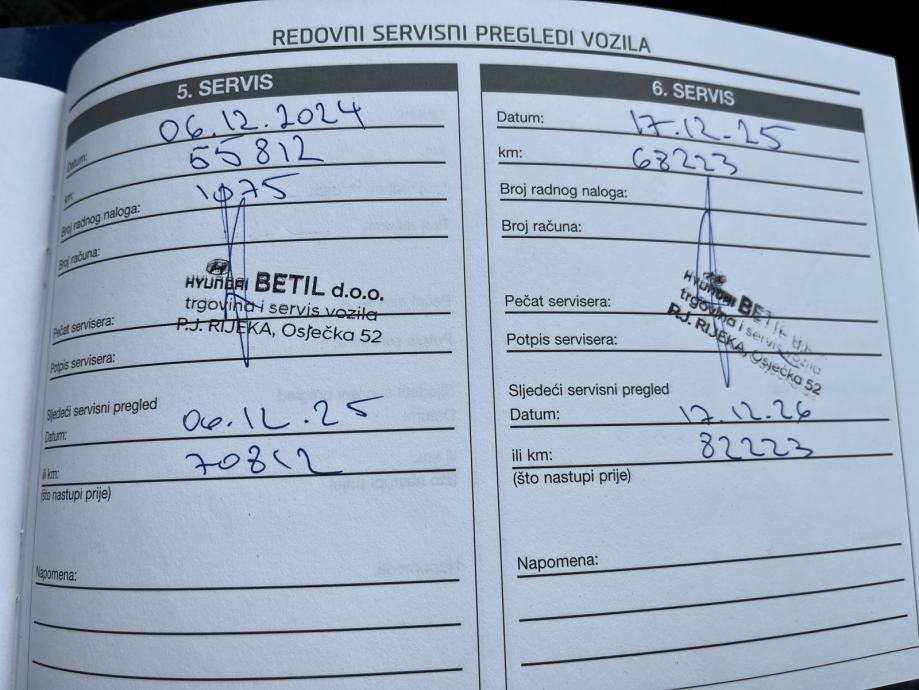 REDOVNI SERVISNI PREGLEDI VOZILA
5. SERVIS
Datum: 06.12.2024
km: 55812
Broj radnog naloga: 1075
Broj računa:
HYUNDAI BETIL d.o.o.
trgovina i servis vozila
P.J. RIJEKA, Osječka 52
Pečat servisera:
Potpis servisera:
Sljedeći servisni pregled
Datum: 06.12.25
ili km: 70812
(što nastupi prije)
Napomena:
6. SERVIS
Datum: 17.12.25
km: 68223
Broj radnog naloga:
Broj računa:
HYUNDAI BETIL d.o.
trgovina i servis vozila
P.J. RIJEKA, Osječka 52
Pečat servisera:
Potpis servisera:
Sljedeći servisni pregled
Datum: 17.12.26
ili km: 82223
(što nastupi prije)
Napomena: